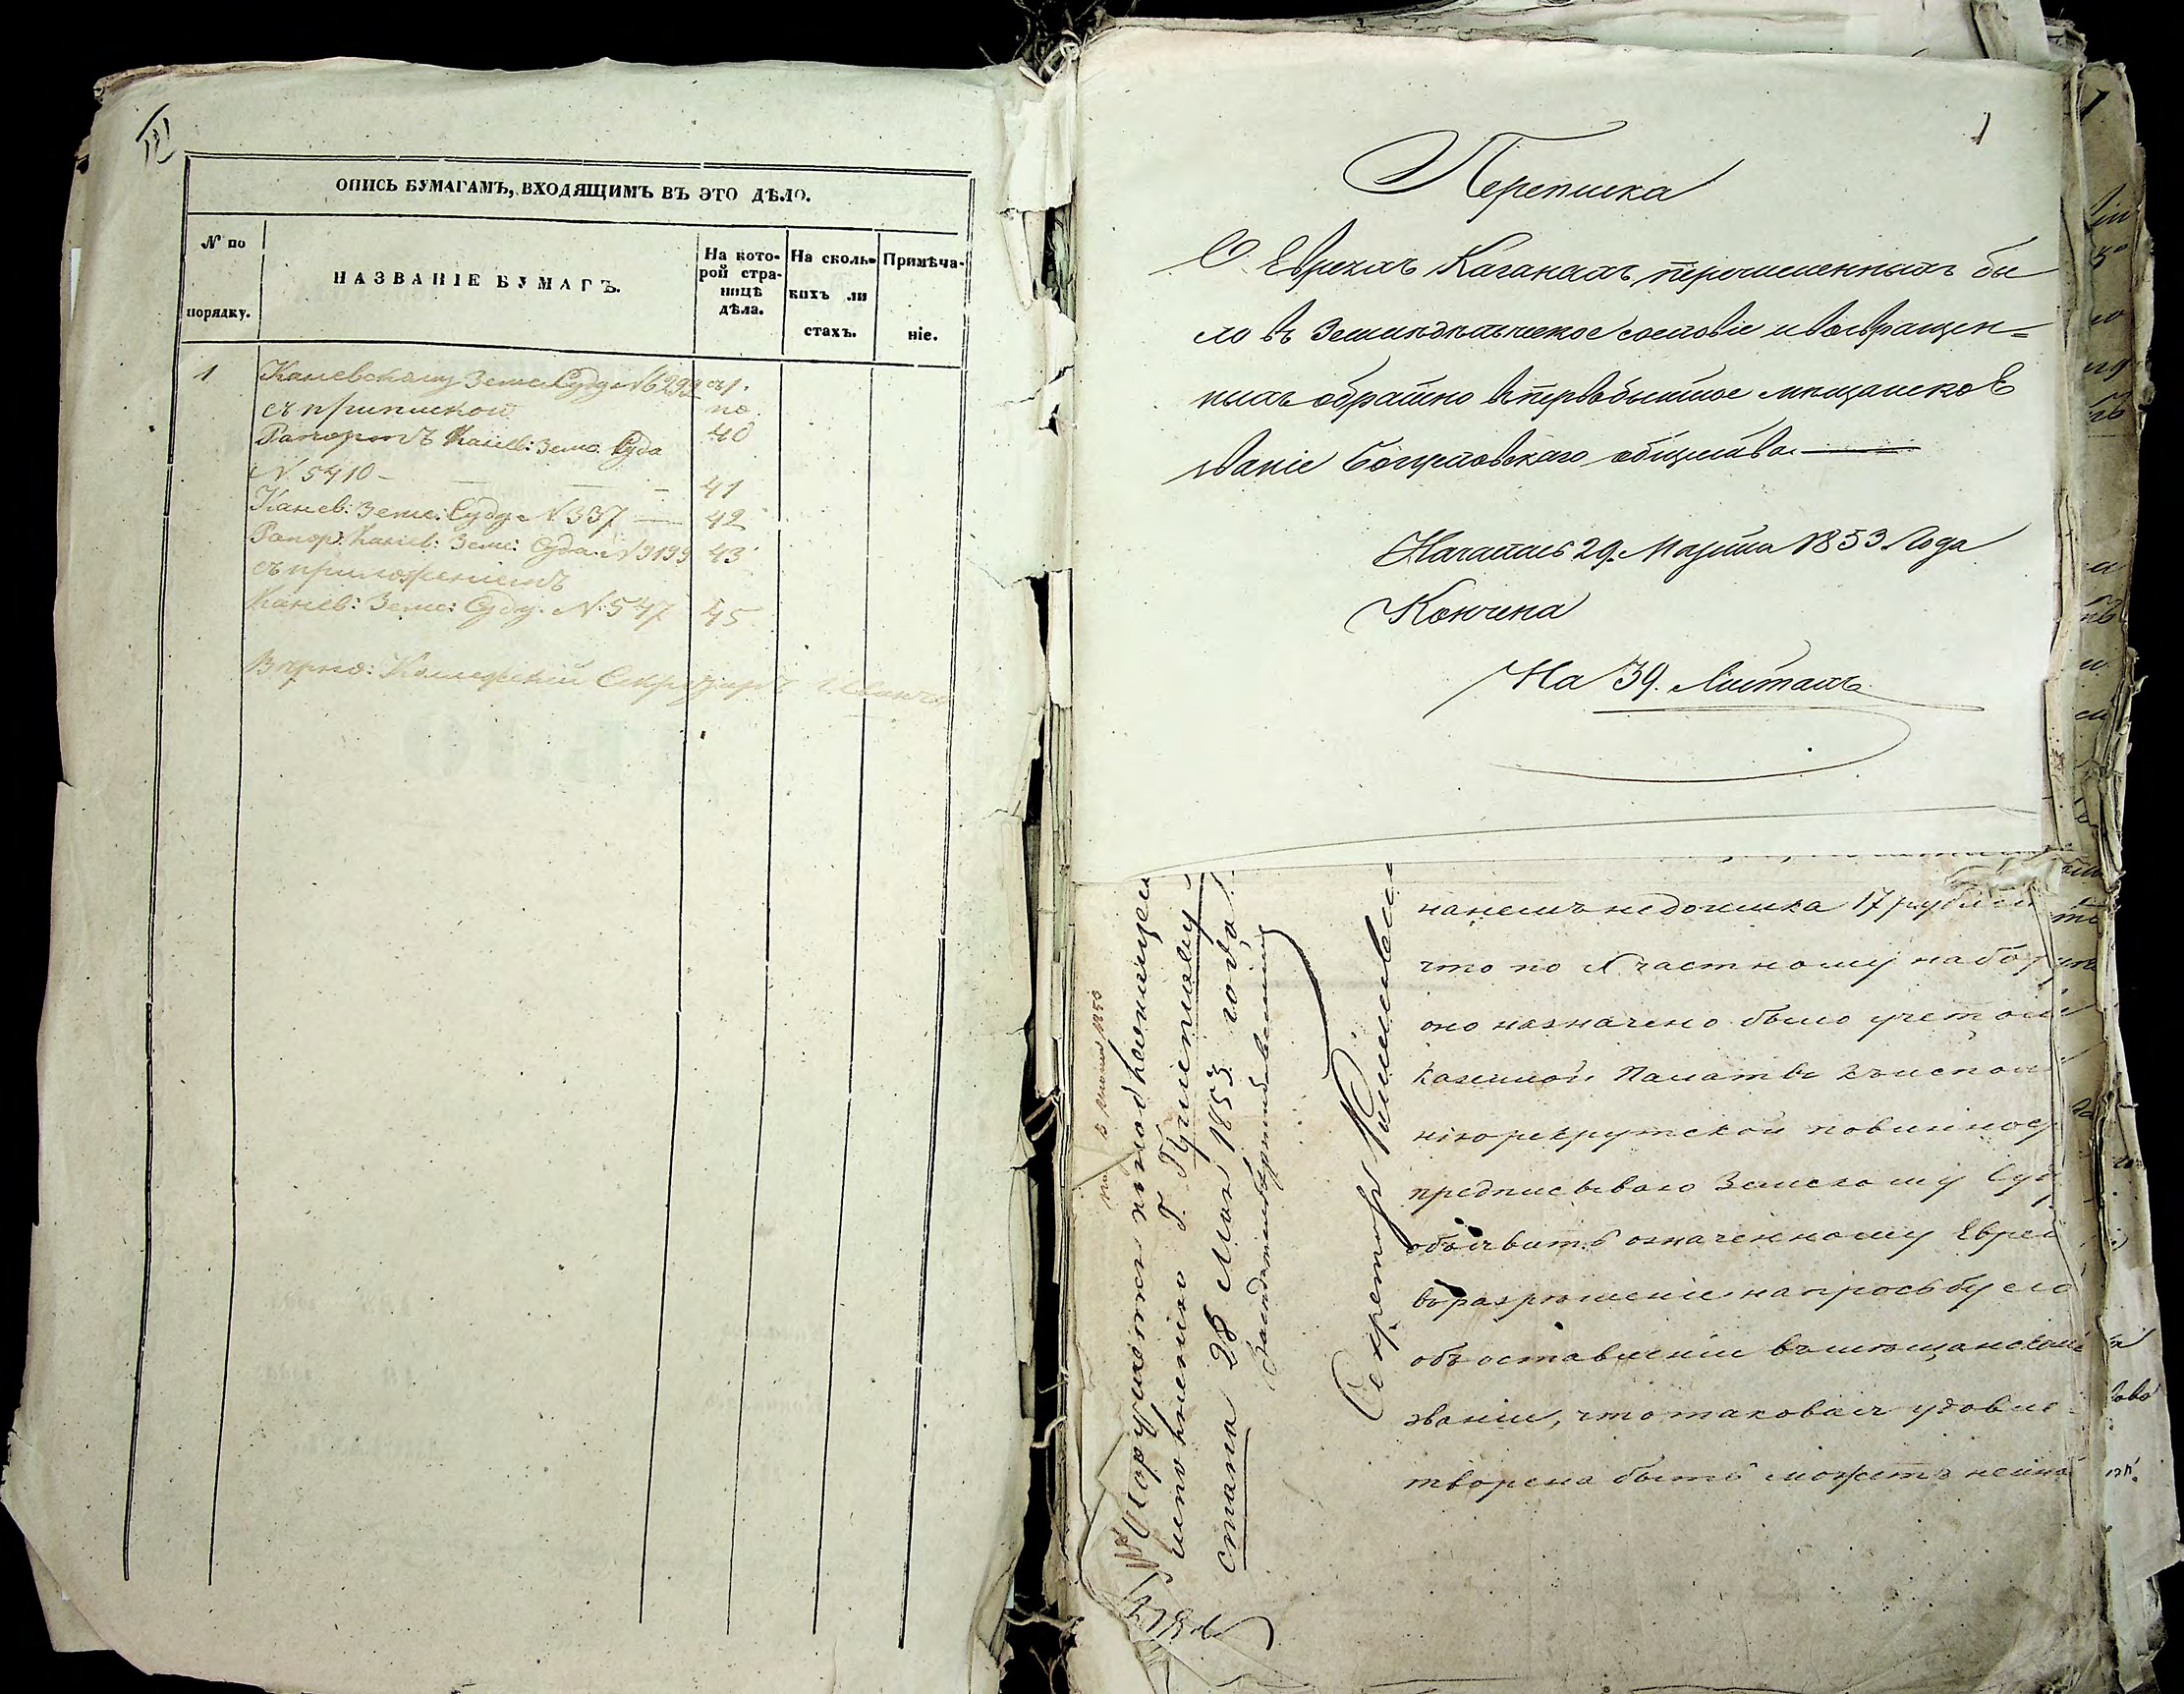 ОПИСЬ БУМАГАМЪ, ВХОДЯЩИМЪ ВЪ ЭТО ДѢЛО.
N по порядку.
НАЗВАНІЕ БУМАГЪ.
На кото-
рой стра-
ницѣ
дѣла.
На сколь-
кихъ ли
стахъ.
Примѣча-
ніе.
1 Каневскому Земс. Суду N 6299 отъ 1.
съ припискою по
Рапортъ Канев: Земс. Суда 40
N 5410 - 41
Канев: Земс: Суду N 337 — 42
Рапор: Канев: Земс: Суда N 3199 43
съ приложеніемъ
Канев: Земс: Суду. N 547 45
Вѣрно: Коллежскій Секретарь
1
Переписка
О Евреяхъ Каганахъ перечисленныхъ бы
ло въ Земледѣльческое сословіе и возвращен=
ныхъ обратно въ первобытное мѣщанское
званіе Богуславскаго общества.
Началась 29. Марта 1853 Года
Кончена
На 39. Листахъ
на немъ недоимка 17 рублей
что по X частному набор
оно назначено было учетом
Казенной Палаты къ испол
нію рекрутской повиннос
предписываю Земскому Суд
объявить означенному Евре
въ разрѣшеніе на просьбу его
объ оставленіи въ мѣщанском
званіи, что таковая удовле-
творена быть можетъ не ина
Секретарь
исполненію Г. Приставу
стана 28 Мая 1853 года.